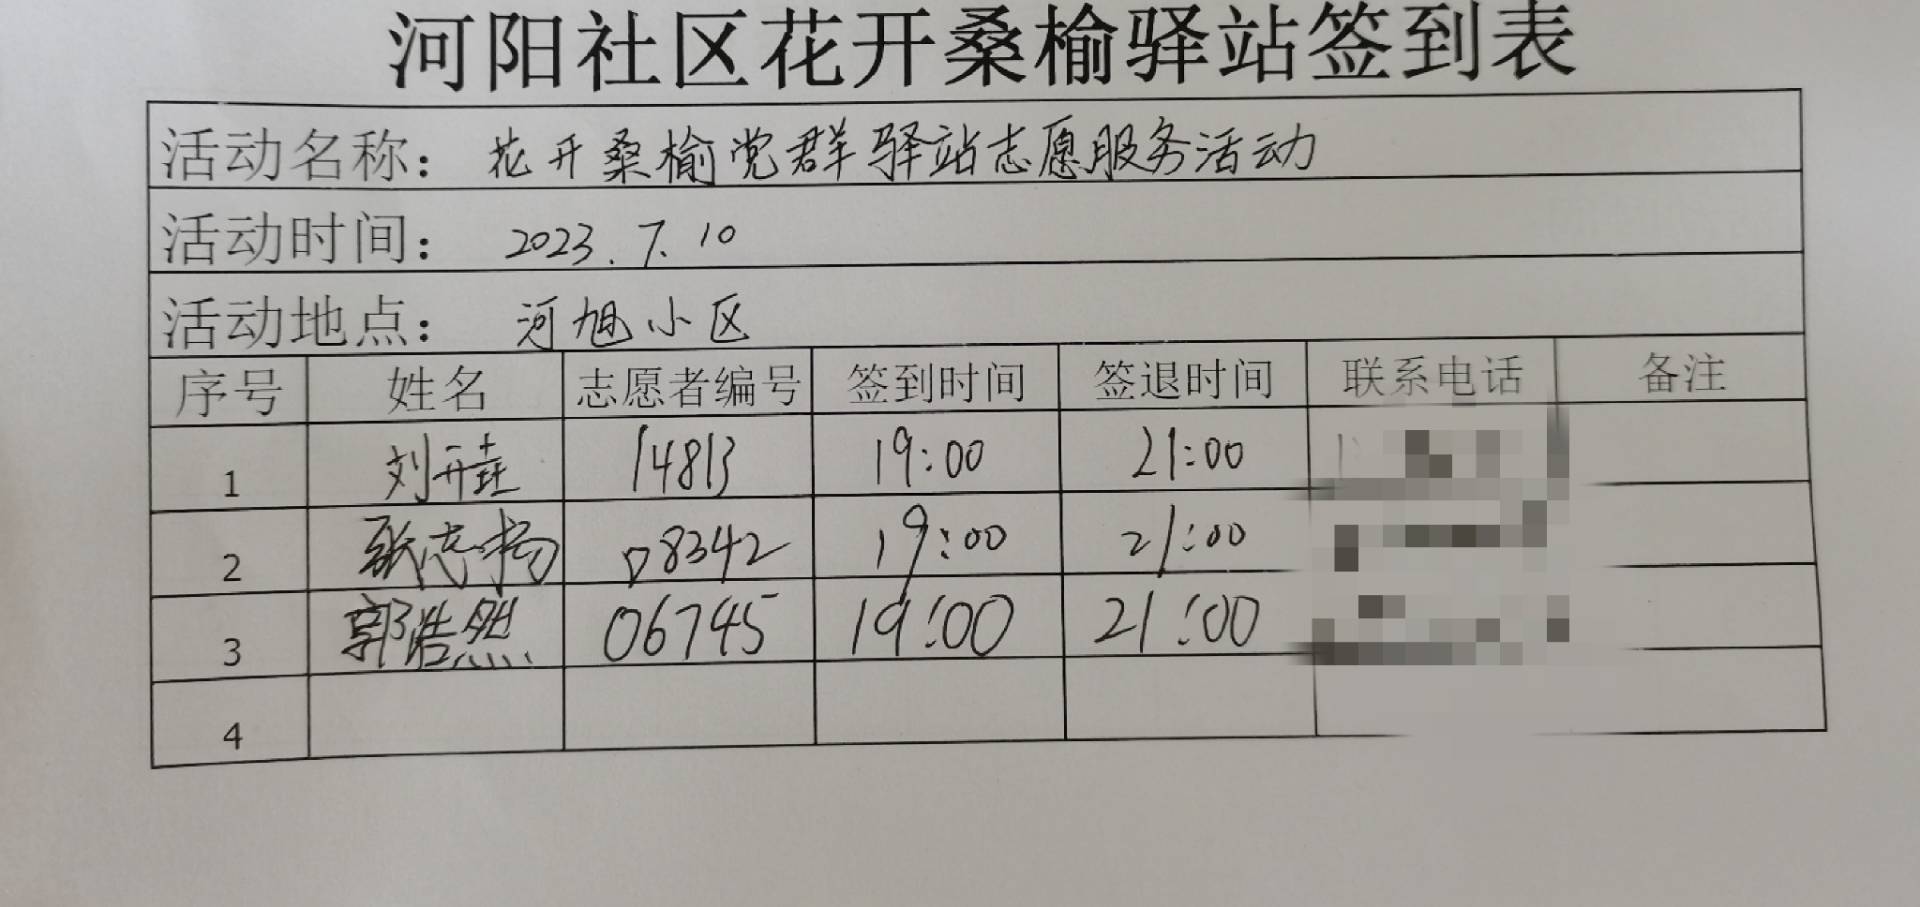 河阳社区花开桑榆驿站签到表
活动名称： 花开桑榆党群驿站志愿服务活动
活动时间： 2023.7.10
活动地点： 河旭小区
序号 姓名 志愿者编号 签到时间 签退时间 联系电话 备注
1 刘 14813 19:00 21:00
2 张志扬 08342 19:00 21:00
3 郭浩然 06745 19:00 21:00
4